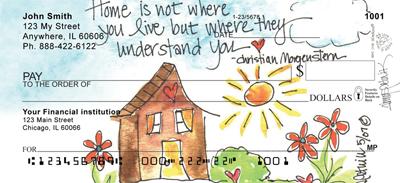 Home is not where
you live but where they
understand you.
-christian Morgenstern
John Smith
123 My Street
Anywhere, IL 60606
Ph. 888-422-6122
1-23/5678
1001
DATE
PAY
TO THE ORDER OF
$
DOLLARS
Your Financial institution
123 Main Street
Chicago, IL 60066
FOR
MP
1001